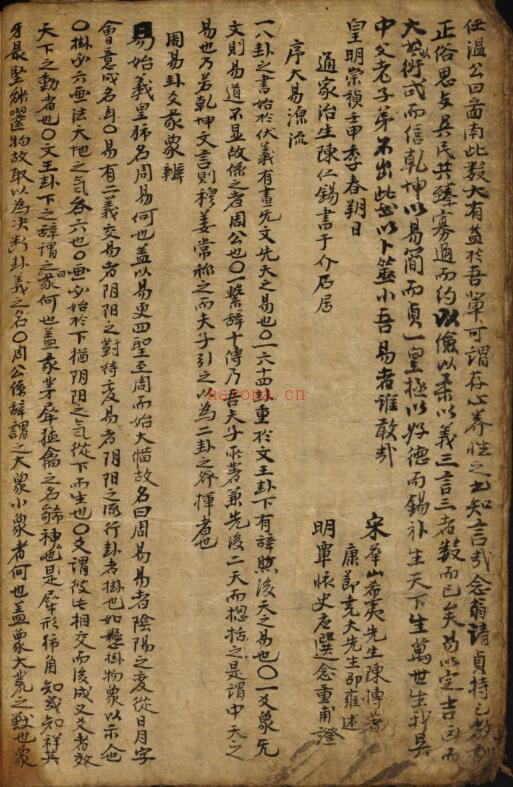 任温公曰啚南此数大有益於吾軰可謂存心养性之士知言哉念翁請貞持己教訓
正俗思与吴民共臻寡過而约以儉以柔以義三言三者数而已矣易以定吉凶而
大衍贰而信乾坤以易簡而貞一皇極以好德而錫补生天下生萬世生我吴
中父老子弟不出此書以卜筮小吾易者谁敢哉
皇明崇禎壬申季春朔日
通家治生陳仁錫書于介石居
宋華山希夷先生陳慱著
康節尭夫先生邵雍述
明覃懷史右選念重甫證
序大易源流
一八卦之書始於伏義有畫先文先天之易也〇一六十四卦重於文王卦下有辞照後天之易也〇一爻象先
文則易道不显故係之者周公也〇一繋辞十傳乃吾夫子所著兼先後二天而揔括之是謂中天之
易也乃若乾坤文言則穆姜常称之而夫子引之以為二卦之發揮者也
周易卦爻彖象辨
易始義皇狮名周易何也盖以易更四聖至周而始大惝故名曰周易易者陰陽之変從日月字
會意成名自〇易有二義交易者阴阳之對待変易者阴阳之流行卦者掛也如懸掛物象以示人也
〇掛必六畫法天地之气各六也〇畫必始於下犹阴阳之气從下而生也〇爻謂彼此相交而後成又爻者效
天下之動者也〇文王卦下之辞謂之彖曰何也盖彖茅犀𢛳禽之名狮神也是犀形狮角知㦯知祥其
牙最坚能噬物故取以為决断卦義之名〇周公係辞謂之大象小象者何也盖象大荒之獸也象